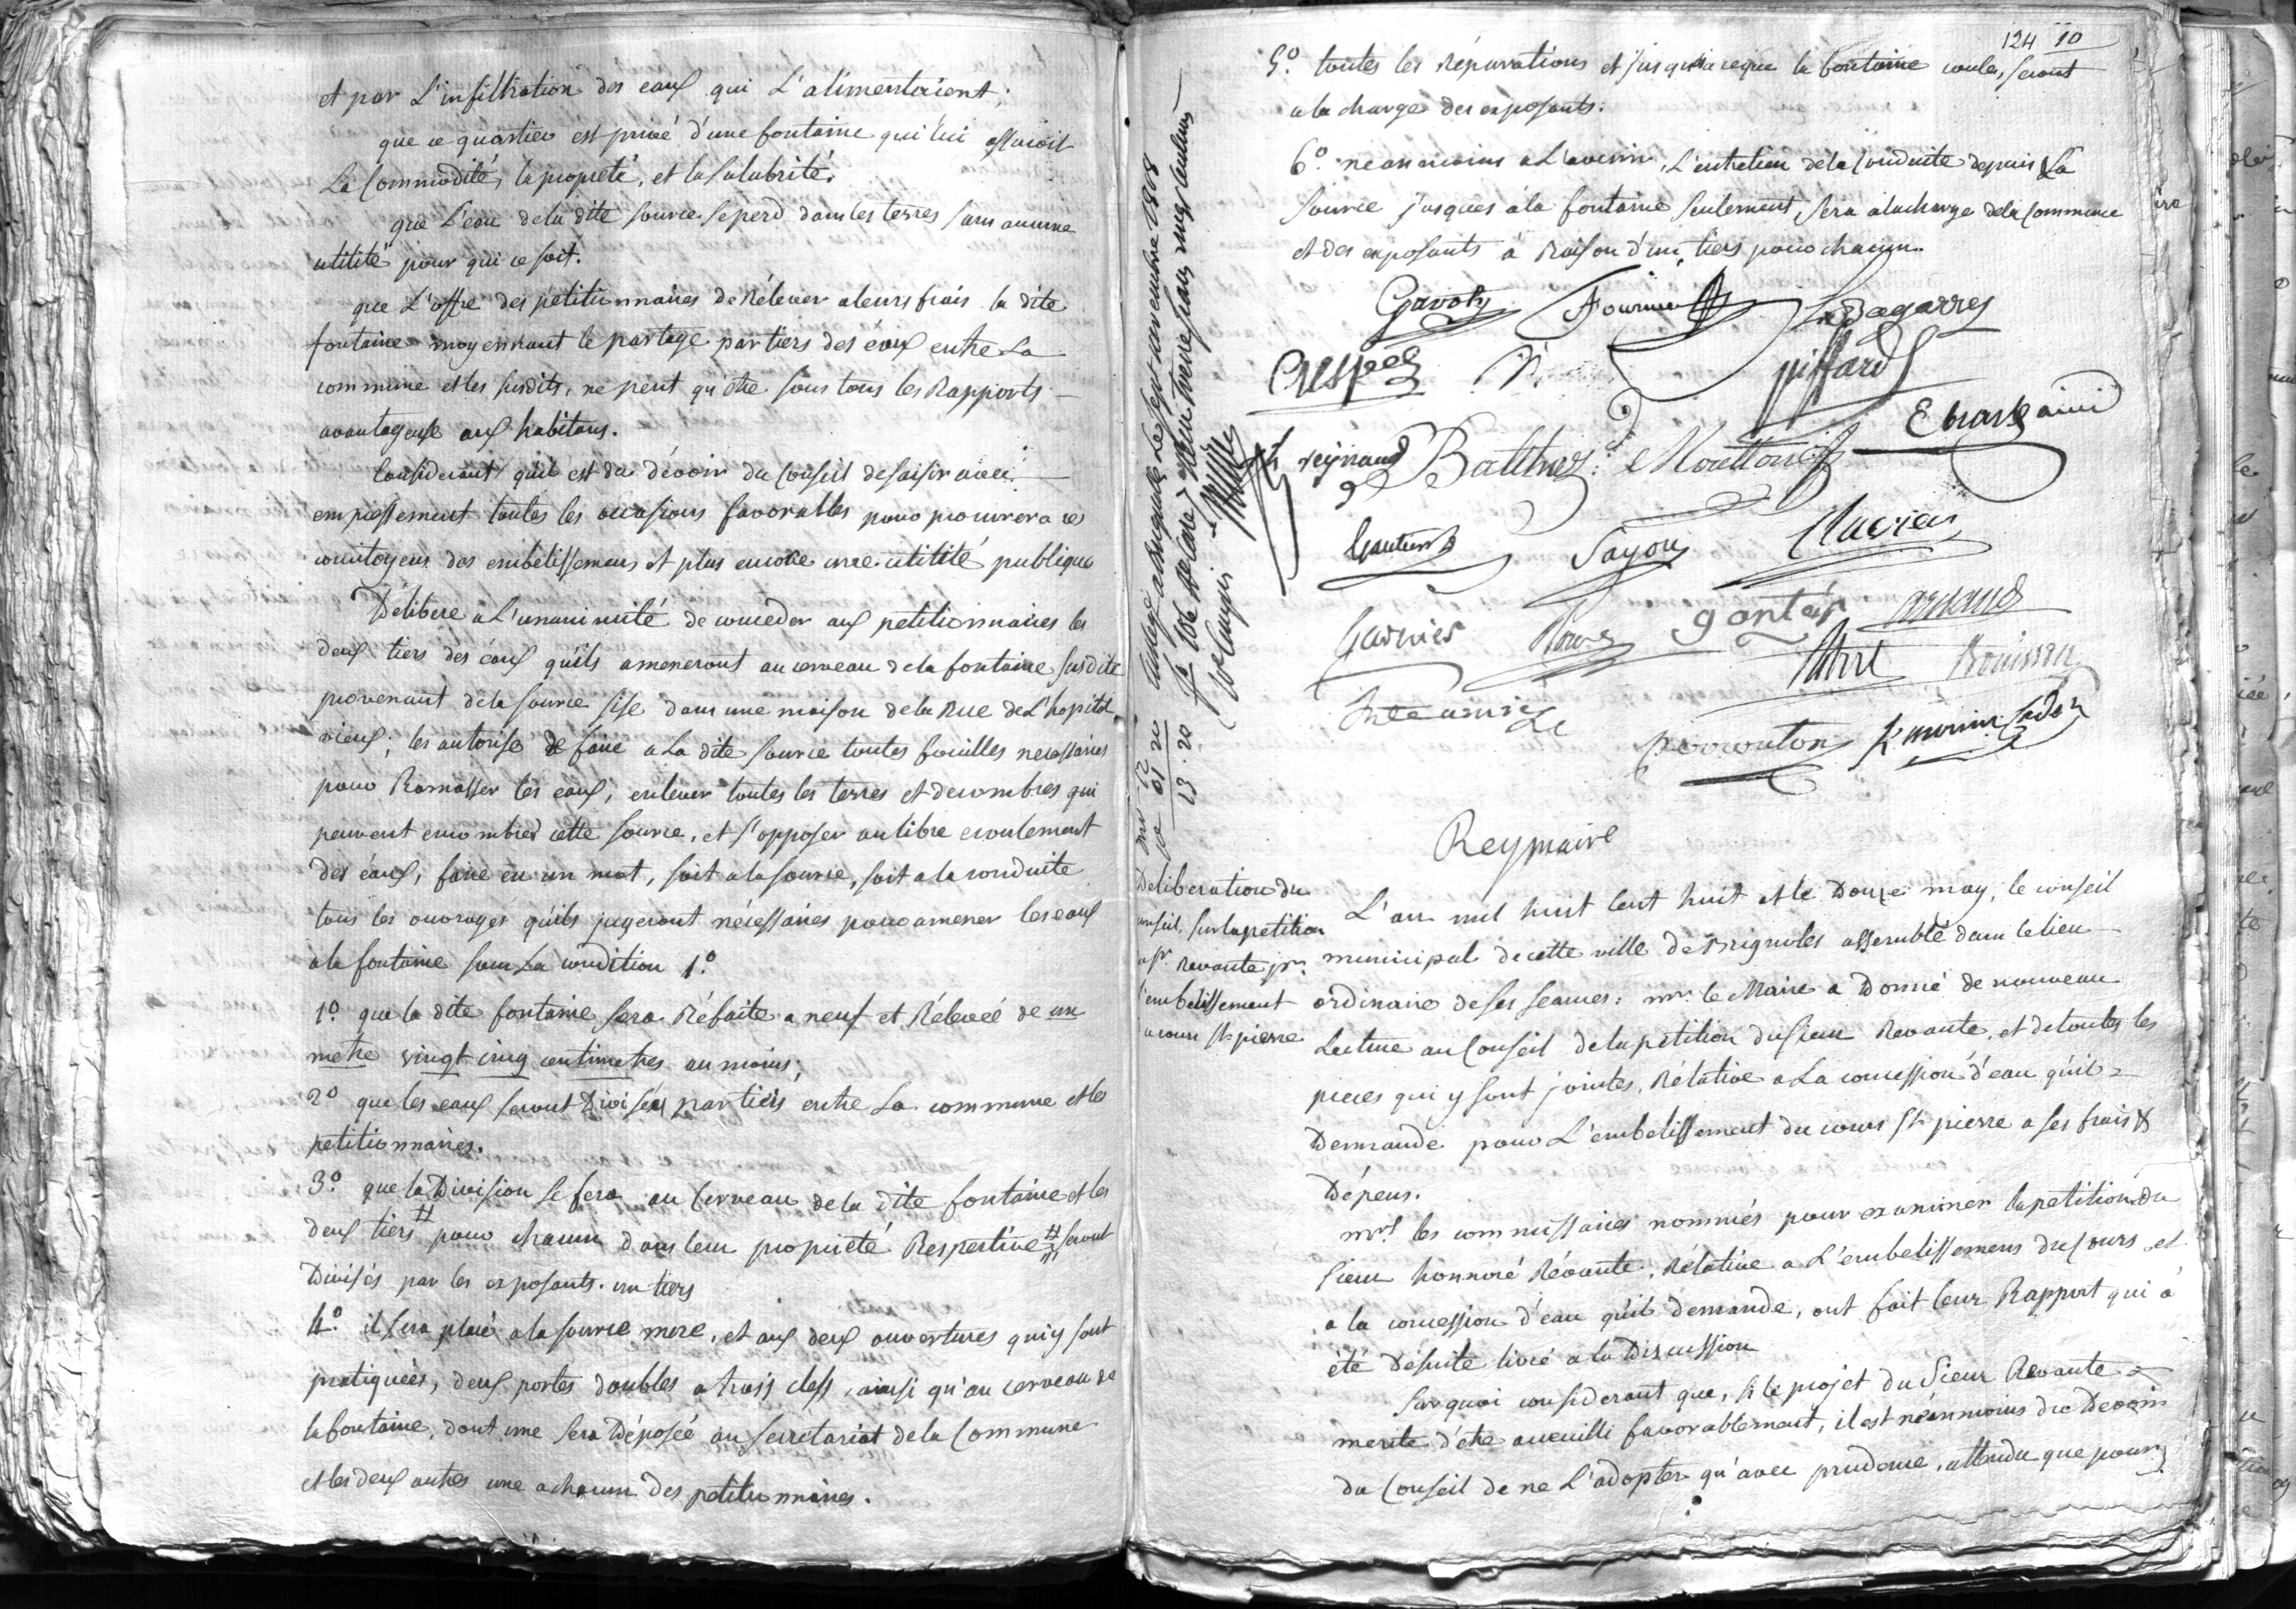 et par L'infiltration des eaux qui L'alimentaient;
que ce quartier est privé d'une fontaine qui lui assuroit
La Commodité, la propreté, et la salubrité.
que L'eau de la dite source se perd dans les terres sans aucune
utilité pour qui ce soit.
que L'offre des pétitionnaires de Rélever a leurs frais la dite
fontaine moyennant le partage par tiers des éaux entre La
commune et les susdits, ne peut qu'être sous tous les Rapports
avantageuse aux habitans.
Considerant qu'il est du dévoir du Conseil de saisir avec
empressement toutes les occasions favorables pour procurer a ses
concitoyens des embelissemens et plus encore une utilité publique
Délibere a L'unanimité de conceder aux petitionnaires les
deux tiers des éaux quils ameneront au cerveau de la fontaine susdite
provenant de la source sise dans une maison de la Rue de L'hopital
vieux; les autorise de faire a La dite source toutes fouilles necessaires
pour Ramasser les eaux, enlever toutes les terres et decombres qui
peuvent encombrer cette source, et s'opposer au libre ecoulement
des éaux, faire en un mot, soit a la source, soit a la conduite
tous les ouvrages quils jugeront nécessaires pour amener les eaux
a la fontaine sous La condition 1.°
1.° que la dite fontaine sera Réfaite a neuf et Rélevée de un
metre vingt cinq centimetres au moins;
2° que les eaux seront Divisées par tiers entre La commune et les
petitionnaires.
3.° que la Division se fera au Cerveau de la dite fontaine et les
deux tiers # pour chacun dans leur propriété Respective # seront
Divisés par les exposants. un tiers
4.° il sera placé a la source mere, et aux deux ouvertures qui y sont
pratiquées, deux portes doubles a trois clefs, ainsi qu'au cerveau de
la fontaine, dont une sera Déposée au Secrétariat de la Commune
et les deux autres une a chacun des petitionnaires.
124 10
5.° toutes les Réparations et jusqu'a ce que la fontaine coule, seront
a la charge des exposants.
6.° neanmoins a L'avenir, L'entretien de la Conduite depuis La
source jusques à la fontaine seulement, sera a la charge de la Commune
et des exposants à Raison d'un tiers pour chacun.
Gavoty Fournier Lebagarres
Crespel piffard
reynaud Balthaz. Moutton Ebrard ainé
Gautier Fayou Clavier
Garnier Roux gantés arnaud
Bouisson
perrouton
Rey maire
Enregé a Brignolle Le sept novembre 1808
f° 106
Déliberation du
conseil, sur la petition
du sr. Revoute pr.
l'embelissement
du cours St. pierre
L'an mil huit Cent huit et le Douze may, le conseil
municipal de cette ville de Brignoles assemblé dans le lieu
ordinaire de ses seances: mr. le Maire a Donné de nouveau
Lecture au Conseil de la petition du sieur Revoute, et de toutes les
pieces qui y sont jointes, Rélative a La concession d'eau qu'il
Demande pour L'embelissement du cours St. pierre a ses frais &
Dépens.
mrs les commissaires nommés pour examiner la petition du
sieur honnoré Révoute, Rélative a L'embelissemens du Cours, et
a la concession d'eau quil demande, ont fait leur Rapport qui a
été Désuite livré a la Discussion
Sur quoi considerant que, si le projet du Sieur Revoute
merite d'etre accueilli favorablement, il est néanmoins du Devoir
du Conseil de ne L'adopter qu'avec prudence, attendu que pour